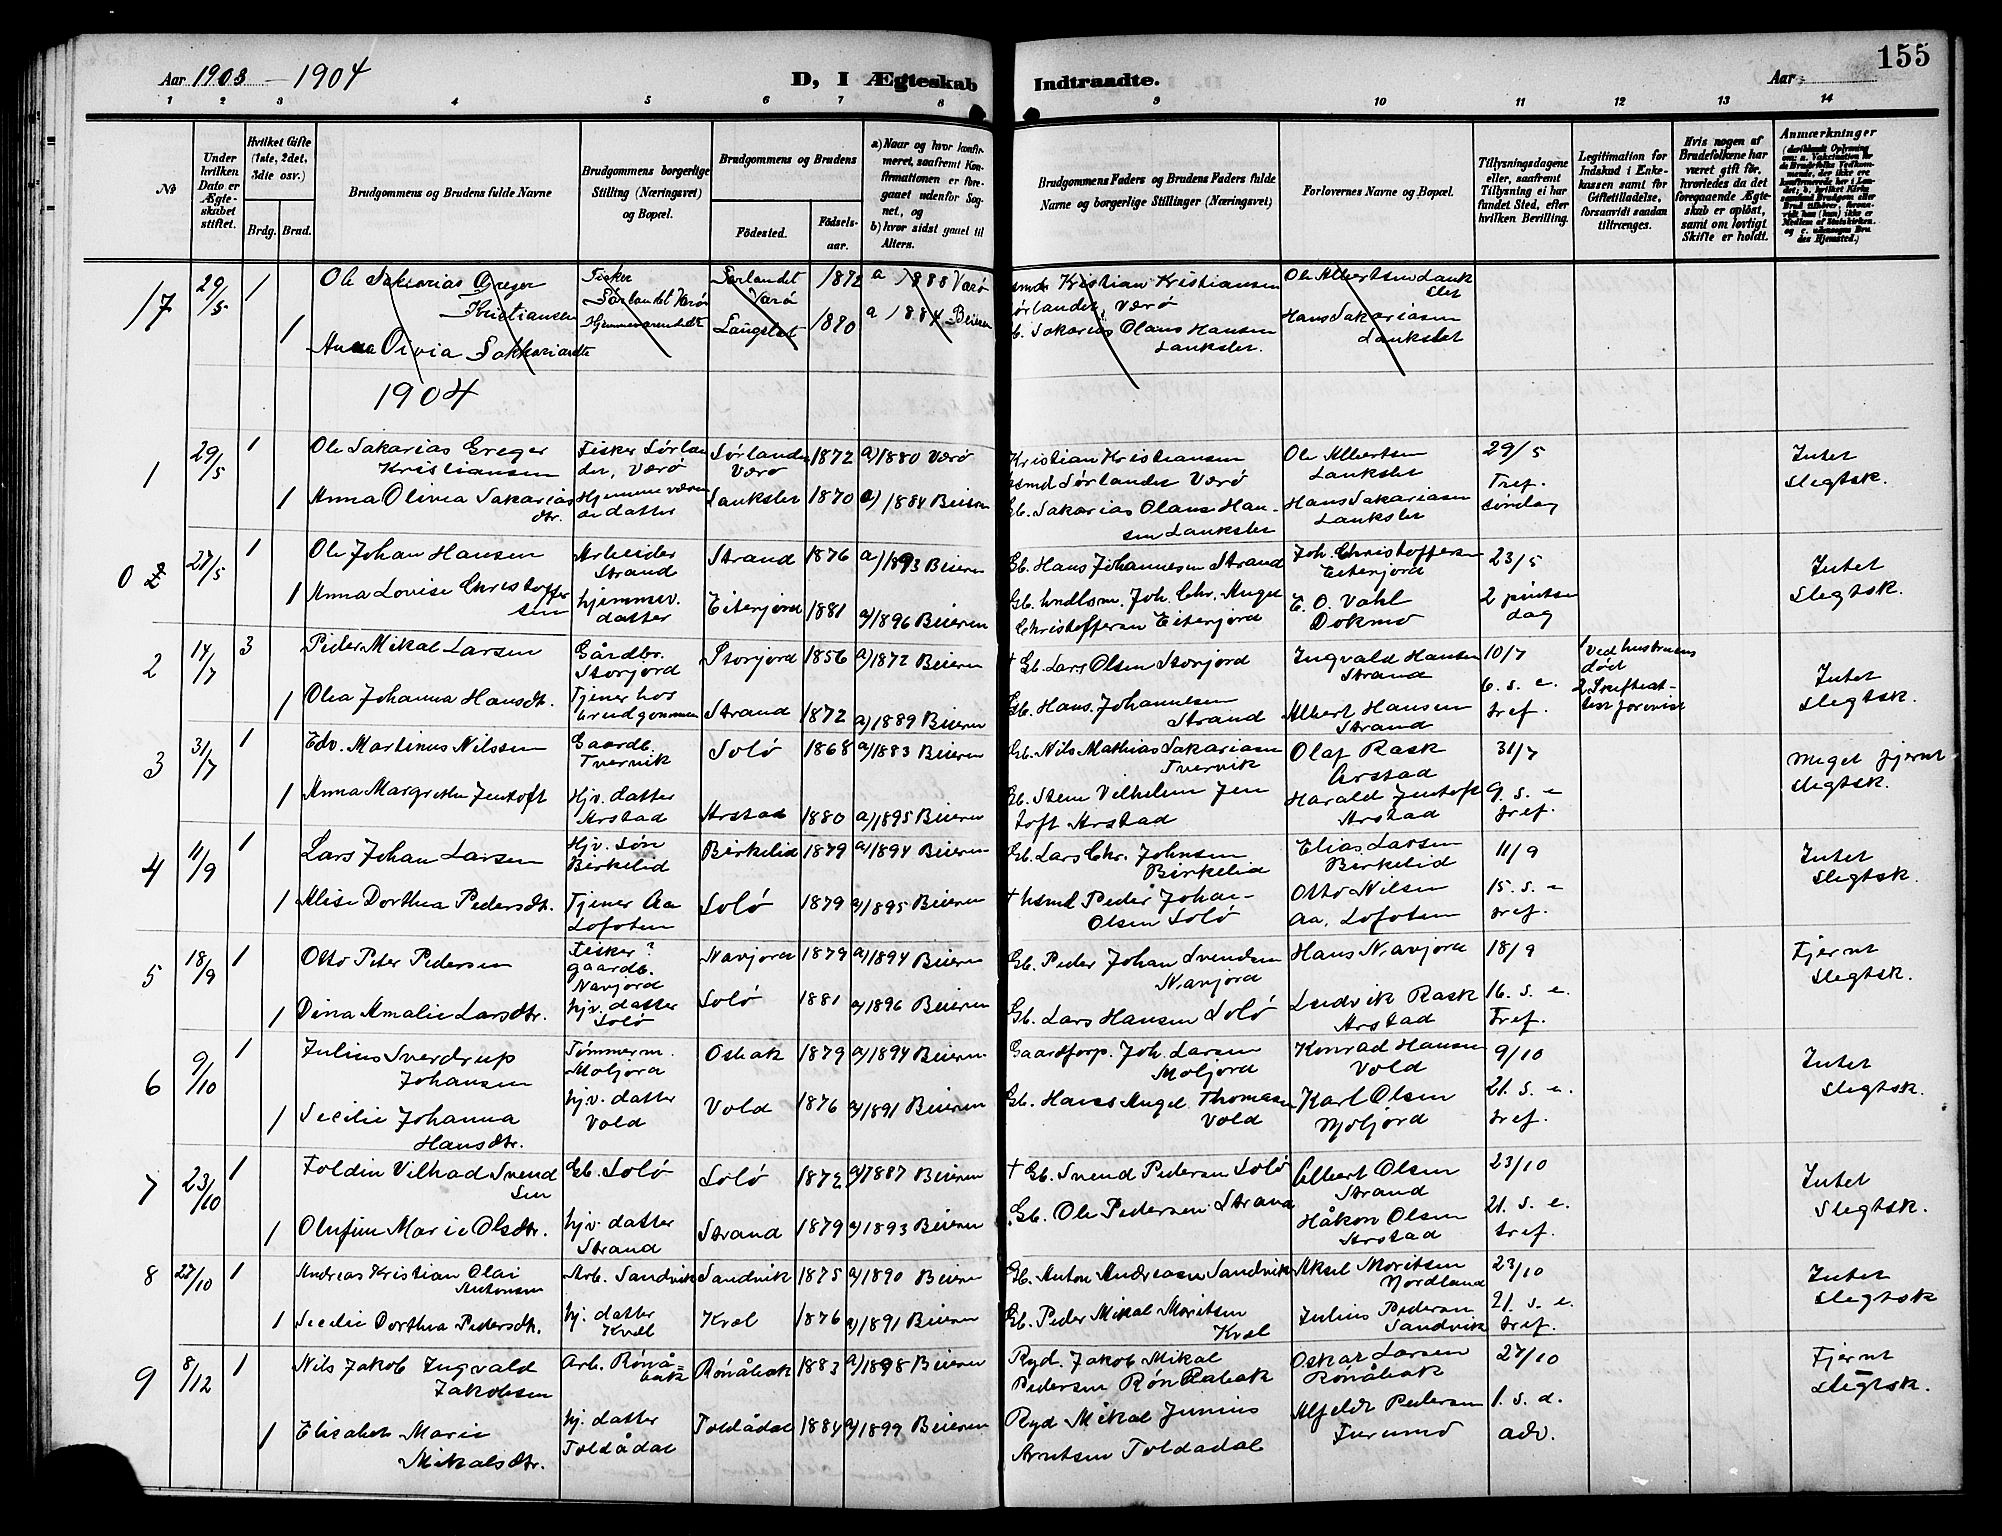 155
Aar 1903 – 1904
D, I Ægteskab Indtraadte.
Aar
1 2 3 4 5 6 7 8 9 10 11 12 13 14
№
Under hvilken Dato er Ægteskabet stiftet.
Hvilket Gifte (1ste, 2det, 3die osv.)
Brdg. Brud.
Brudgommens og Brudens fulde Navne
Brudgommens borgerlige Stilling (Næringsvei) og Bopæl.
Brudgommens og Brudens
Fødested. Fødselsaar.
a) Naar og hvor konfirmeret, saafremt Konfirmationen er foregaaet udenfor Sognet, og
b) hvor sidst gaaet til Alters.
Brudgommens Faders og Brudens Faders fulde Navne og borgerlige Stillinger (Næringsvei)
Forlovernes Navne og Bopæl.
Tillysningsdagene eller, saafremt Tillysning ei har fundet Sted, efter hvilken Bevilling.
Legitimation for Indskud i Enkekassen samt for Giftetilladelse, forsaavidt saadan tiltrænges.
Hvis nogen af Brudefolkene har været gift før, hvorledes da det foregaaende Ægteskab er opløst, samt om lovligt Skifte er holdt.
Anmærkninger
17 29/5 1 Ole Sakkarias Greger Kristiansen Fisker Sørlandet Værø Sørlandet Værø 1872 a 1888 Værø
Kristian Kristiansen Sørlandet, Værø Ole Albertsen Lankslet
1 Anna Olivia Sakkariasdtr Hjemmeværende 1880 a) 1884 Beieren
Sakarias Olaus Hansen Lankslet. Hans Sakariasen Lankslet
1904
1 29/5 1 Ole Sakarias Greger Kristiansen Fisker Sørlandet, Værø Sørlandet Værø 1872 a) 1880 Værø
Kristian Kristiansen Sørlandet Værø Ole Albertsen Lankslet 29/5 Intet Slegtsk.
1 Anna Olivia Sakariasdtr. Hjemmeværende datter Lankslet 1870 a) 1884 Beieren
Gb. Sakarias Olaus Hansen Lankslet Hans Sakariasen Lankslet Tref. søndag
0 2 27/5 1 Ole Johan Hansen Arbeider Strand Strand 1876 a) 1893 Beieren
Gb. Hans Johannesen Strand Joh. Christoffersen Eiterjord 23/5 Intet Slegtsk.
1 Anna Lovise Christoffersen hjemmev. datter Eiterjord 1881 a) 1896 Beieren
Gb. Joh. Chr. Angel Christoffersen Eiterjord E. O. Vahl Dokmo 2 pintsedag
2 14/7 3 Peder Mikal Larsen Gårdbr. Storjord Storjord 1856 a) 1872 Beieren
† Gb. Lars Olsen Storjord Ingvald Hansen Strand 10/7 1 Ved hustruens død Intet Slegtsk.
1 Olea Johanna Hansdtr. Tjener hos brudgommen Strand 1872 a) 1889 Beieren
Gb. Hans Johannesen Strand Albert Hansen Strand 6. s. e. tref. 2 Skifteattest forevist
3 31/7 1 Edv. Martinus Nilssen Gaardb. Tvervik Solø 1868 a) 1883 Beieren
Gb. Nils Mathias Sakariasen Tvervik Olaf Rask Arstad 31/7 Meget fjernt slegtsk.
1 Anna Margrethe Jentoft Hjv. datter Arstad Arstad 1880 a) 1895 Beieren
Gb. Sten Vilhelm Jentoft Arstad Harald Jentoft Arstad 9. s. e tref.
4 11/9 1 Lars Johan Larsen Hjv. søn Birkelid Birkelid 1879 a) 1894 Beieren
Gb. Lars Chr. Johnsen Birkelid Elias Larsen Birkelid 11/9 Intet Slegtsk.
1 Alise Dorthea Pedersdtr. Tjener Aa Lofoten Solø 1879 a) 1895 Beieren
† husmd Peder Johan Olsen Solø Otto Nilsen Aa, Lofoten 15. s. e tref.
5 18/9 1 Otto Peter Pedersen Fisker? gaardb. Navjord Navjord 1879 a) 1894 Beieren
Gb. Peder Johan Svendsen Navjord Hans Navjord 18/9 Fjernt Slegtsk.
1 Dina Amalie Larsdtr. hjv. datter Solø Solø 1881 a) 1896 Beieren
Gb. Lars Hansen Solø Ludvik Rask Arstad 16. s. e. Tref.
6 9/10 1 Julius Sverdrup Johansen Tømmerm. Moljord Osbak 1879 a) 1894 Beieren
Gaardforp. Joh. Larsen Moljord Konrad Hansen Vold 9/10 Intet Slegtsk.
1 Secilie Johanna Hansdtr. hjv. datter Vold Vold 1876 a) 1891 Beieren
Gb. Hans Angel Thomasen Vold Karl Olsen Moljord 21. s. e. tref.
7 23/10 1 Foldin Vilhad Svendsen Gb. Solø Solø 1872 a) 1887 Beieren
† Gb. Svend Pedersen Solø Albert Olsen Strand 23/10 Intet Slegtsk.
1 Olufine Marie Olsdtr. hjv. datter Strand Strand 1879 a) 1893 Beieren
Gb. Ole Pedersen Strand Håkon Olsen Arstad 21. s. e. tref.
8 27/10 1 Andreas Kristian Olai Antonsen Arb. Sandvik Sandvik 1875 a) 1890 Beieren
Gb. Anton Andreasen Sandvik Aksel Moritsen Nordland 23/10 Intet Slegtsk
1 Secilie Dorthea Pedersdtr. hj. datter Kvæl Kvæl 1876 a) 1891 Beieren
Gb. Peder Mikal Moritsen Kvæl Julius Pedersen Sandvik 21. s. e. tref.
9 8/12 1 Nils Jakob Ingvald Jakobsen Arb. Rønåbak Rønåbak 1883 a) 1898 Beieren
Ryd. Jakob Mikal Pedersen Rønåbak Oskar Larsen Rønåbak 27/10 Fjernt Slegtsk.
1 Elisabet Marie Mikalsdtr. hj. datter Toldådal Toldådal 1884 a) 1899 Beieren
Ryd Mikal Junius Arntsen Toldådal Alfeldt Pedersen Furumo 1. s. d. adv.